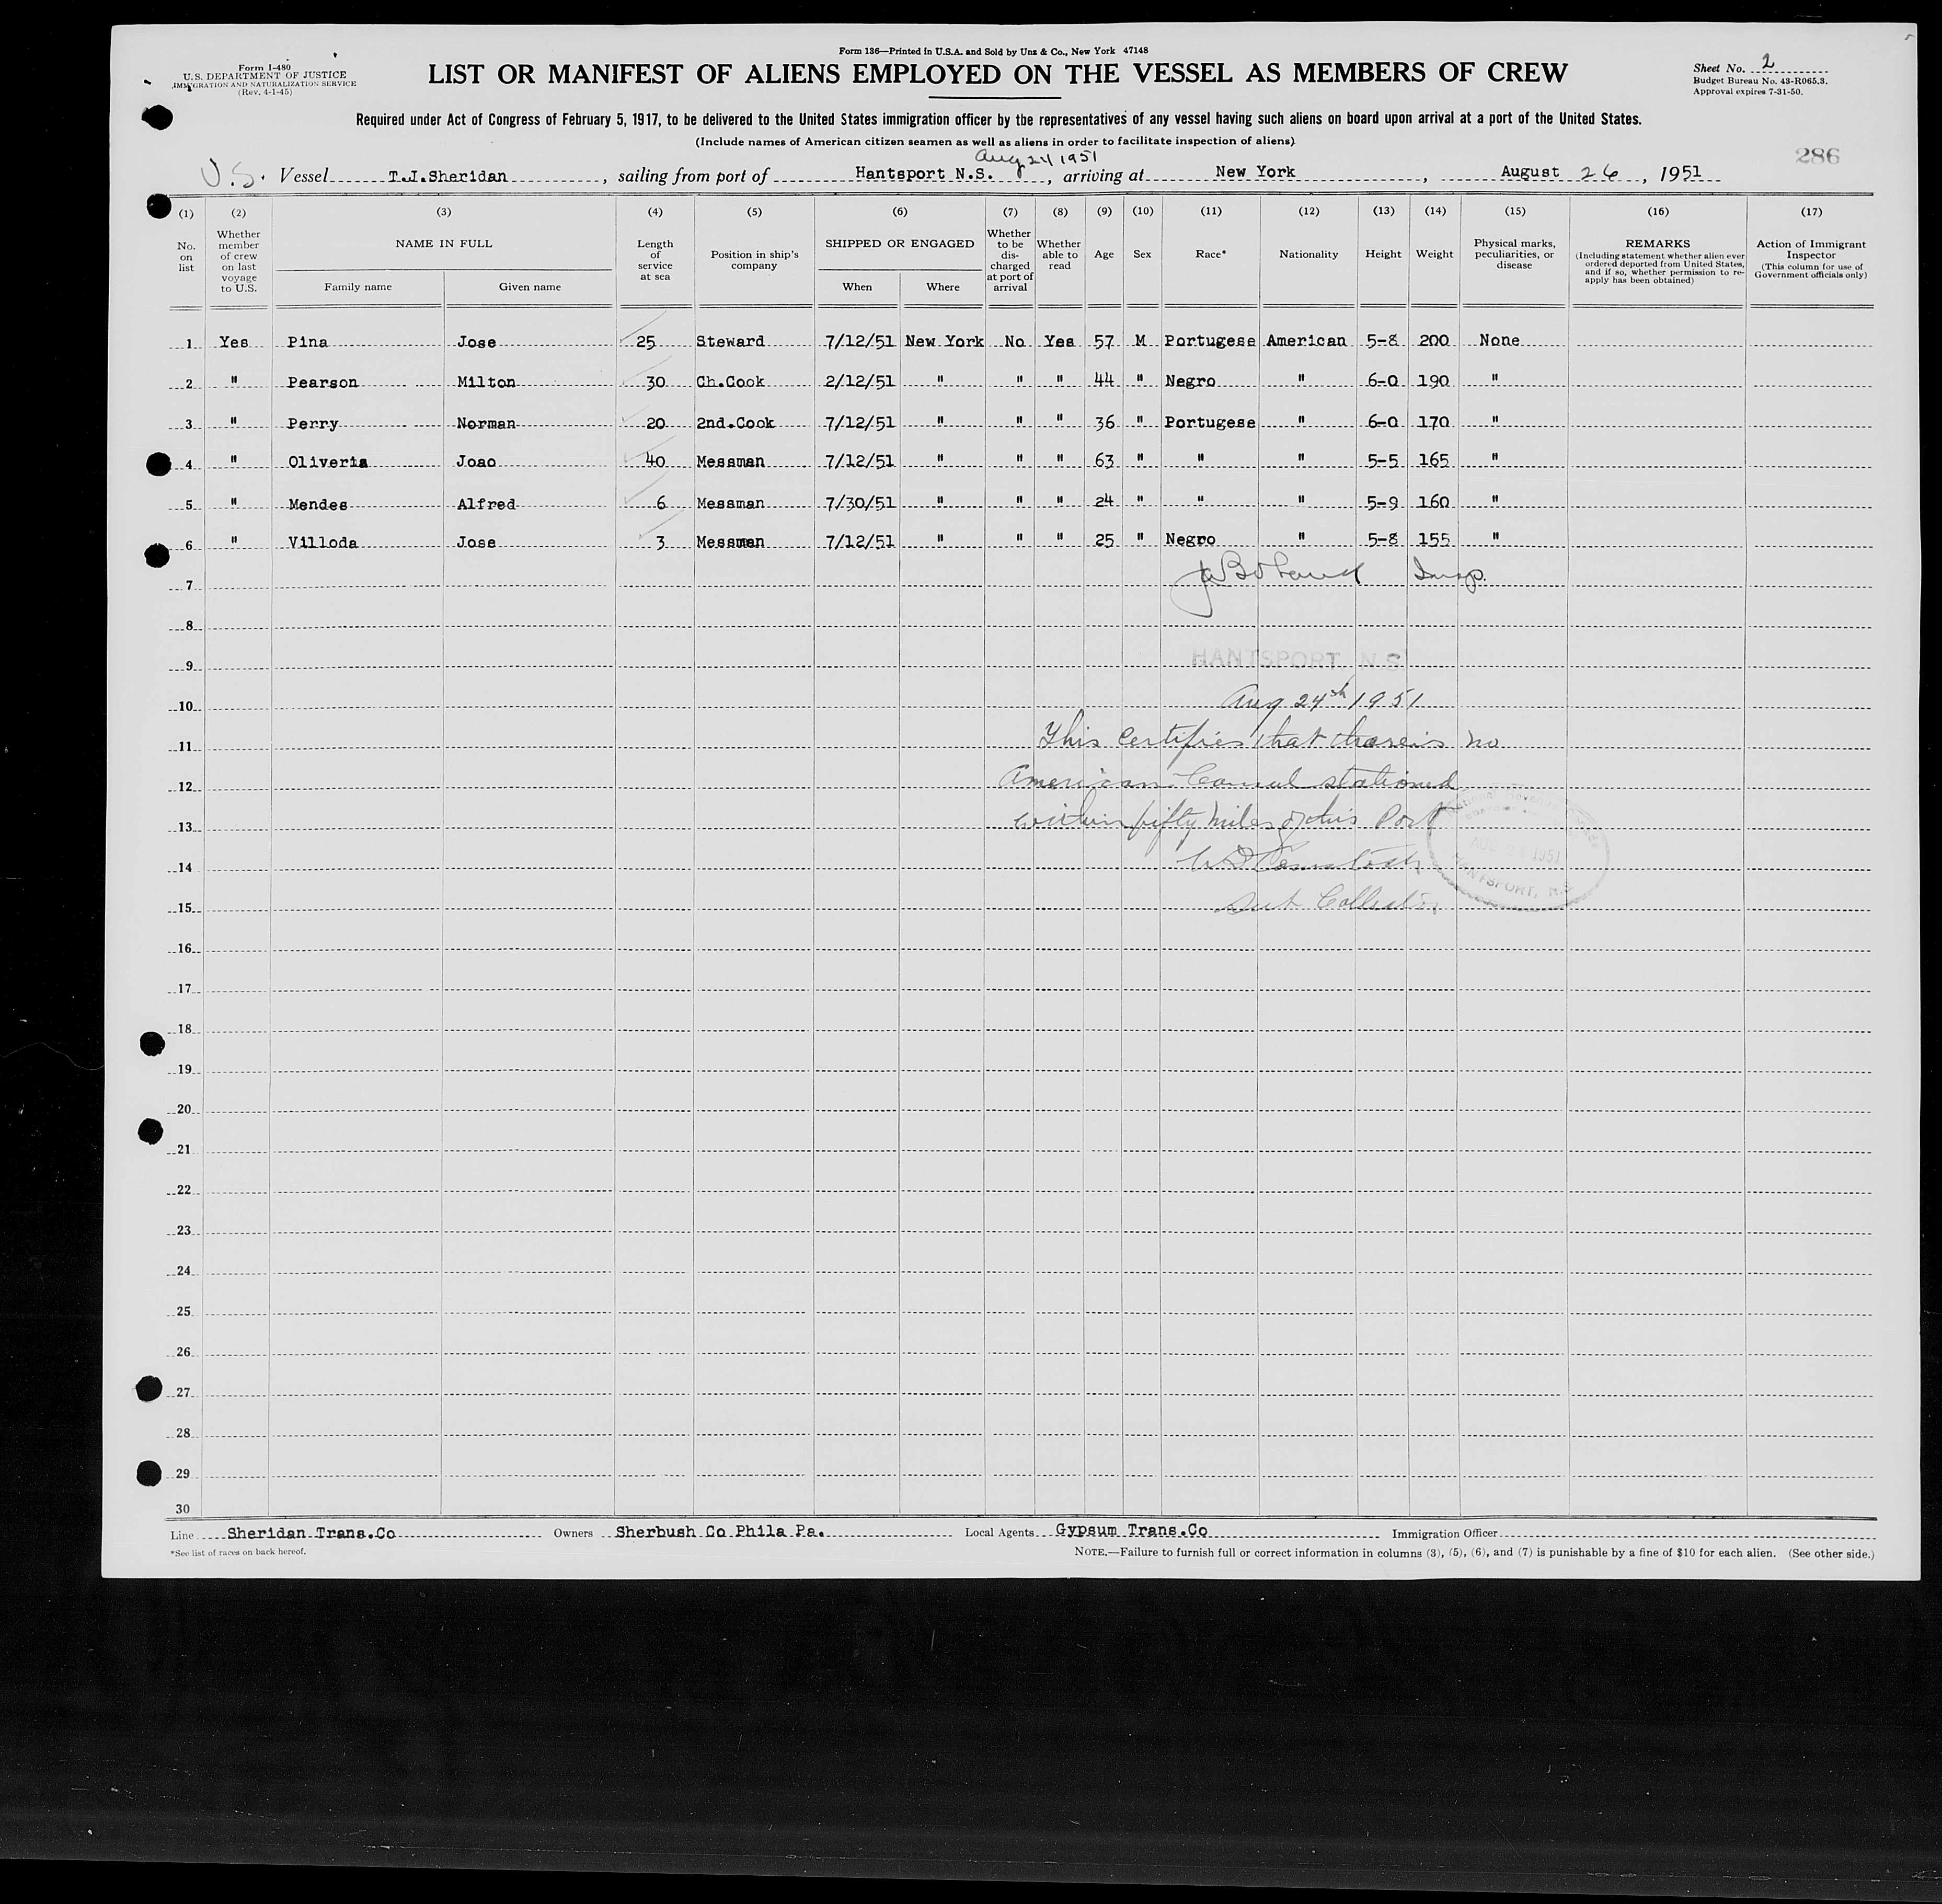 Form 136—Printed in U.S.A. and Sold by Unz & Co., New York 47148
Form I-480
U.S. DEPARTMENT OF JUSTICE
IMMIGRATION AND NATURALIZATION SERVICE
(Rev. 4-1-45)
LIST OR MANIFEST OF ALIENS EMPLOYED ON THE VESSEL AS MEMBERS OF CREW
Sheet No. 2
Budget Bureau No. 43-R065.3.
Approval expires 7-31-50.
Required under Act of Congress of February 5, 1917, to be delivered to the United States immigration officer by the representatives of any vessel having such aliens on board upon arrival at a port of the United States.
(Include names of American citizen seamen as well as aliens in order to facilitate inspection of aliens)
Aug 24 1951
286
U.S. Vessel T.J.Sheridan, sailing from port of Hantsport N.S., arriving at New York, August 26, 1951
(1) (2) (3) (4) (5) (6) (7) (8) (9) (10) (11) (12) (13) (14) (15) (16) (17)
No. on list
Whether member of crew on last voyage to U.S.
NAME IN FULL
Family name
Given name
Length of service at sea
Position in ship's company
SHIPPED OR ENGAGED
When
Where
Whether to be discharged at port of arrival
Whether able to read
Age
Sex
Race*
Nationality
Height
Weight
Physical marks, peculiarities, or disease
REMARKS
(Including statement whether alien ever ordered deported from United States, and if so, whether permission to re-apply has been obtained)
Action of Immigrant Inspector
(This column for use of Government officials only)
1 Yes Pina Jose 25 Steward 7/12/51 New York No Yes 57 M Portugese American 5-8 200 None
2 " Pearson Milton 30 Ch.Cook 2/12/51 " " " 44 " Negro " 6-0 190 "
3 " Perry Norman 20 2nd.Cook 7/12/51 " " " 36 " Portugese " 6-0 170 "
4 " Oliveria Joao 40 Messman 7/12/51 " " " 63 " " " 5-5 165 "
5 " Mendes Alfred 6 Messman 7/30/51 " " " 24 " " " 5-9 160 "
6 " Villoda Jose 3 Messman 7/12/51 " " " 25 " Negro " 5-8 155 "
7 Insp.
8
9 HANTSPORT N.S.
10 Aug 24th 1951
11 This certifies that there is no
12 American Consul stationed
13 within fifty miles of this Port
14
15 Sub Collector
AUG 24 1951
HANTSPORT, N.S.
16
17
18
19
20
21
22
23
24
25
26
27
28
29
30
Line Sheridan Trans.Co Owners Sherbush Co Phila Pa. Local Agents Gypsum Trans.Co Immigration Officer
*See list of races on back hereof.
NOTE.—Failure to furnish full or correct information in columns (3), (5), (6), and (7) is punishable by a fine of $10 for each alien. (See other side.)